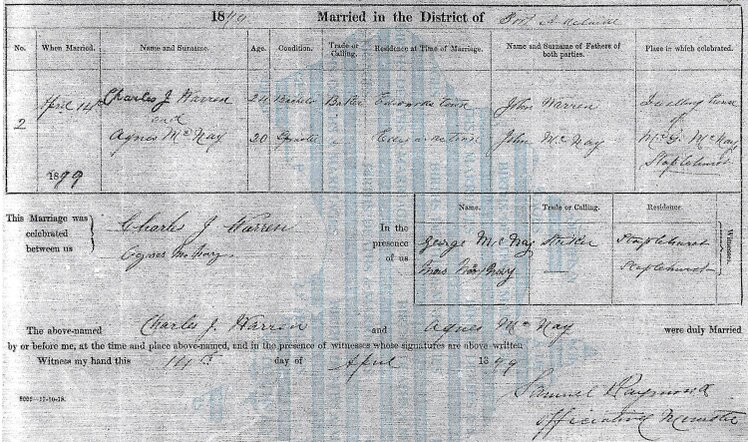 1899. Married in the District of Port Adelaide
No. When Married. Name and Surname. Age. Condition. Trade or Calling. Residence at Time of Marriage. Name and Surname of Fathers of both parties. Place in which celebrated.
2 April 14th Charles J Warren 24 Baker Edwardstown John Warren Dwelling house
and of
Agnes McNay 20 Spinster Edwardstown John McNay Mr G. McNay
Staplehurst
1899
This Marriage was celebrated between us
Charles J Warren
Agnes McNay
In the presence of us
Name. Trade or Calling. Residence.
George McNay Staplehurst
McNay — Staplehurst
Witnesses.
The above-named Charles J. Warren and Agnes McNay were duly Married
by or before me, at the time and place above-named, and in the presence of witnesses whose signatures are above written
Witness my hand this 14th day of April 1899
Samuel Raymond
Officiating Minister